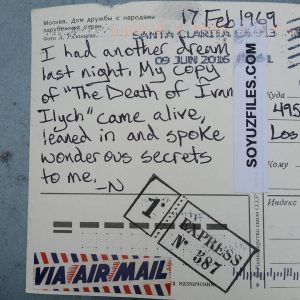 17 Feb 1969
Москва. Дом дружбы с народами
зарубежных стран.
SANTA CLARITA
09 JUN 2016
I had another dream
last night. My copy
of "The Death of Ivan
Ilych" came alive,
leaned in and spoke
wonderous secrets
to me. -N
SOYUZFILES.COM
Куда
495
Los
Кому
1st
EXPRESS
No 387
VIA AIR MAIL
назначения